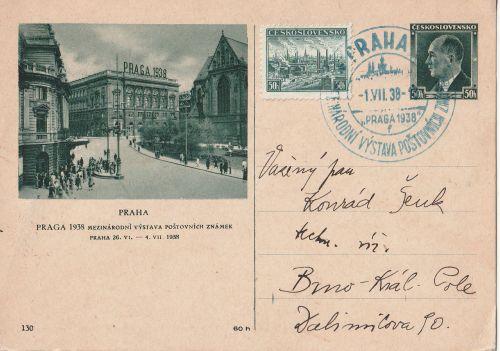 PRAGA 1938
PRAHA
PRAGA 1938 MEZINÁRODNÍ VÝSTAVA POŠTOVNÍCH ZNÁMEK
PRAHA 26. VI. — 4. VII. 1938
130
60 h
ČESKOSLOVENSKO
50h
ČESKOSLOVENSKO
50h
50h
PRAHA
-1.VII.38-
PRAGA 1938
VÝSTAVA POŠTOVNÍCH
Vážený pan
Konrád Šenk
techn. úř.
Brno-Král. Pole
Dalimilova 90.